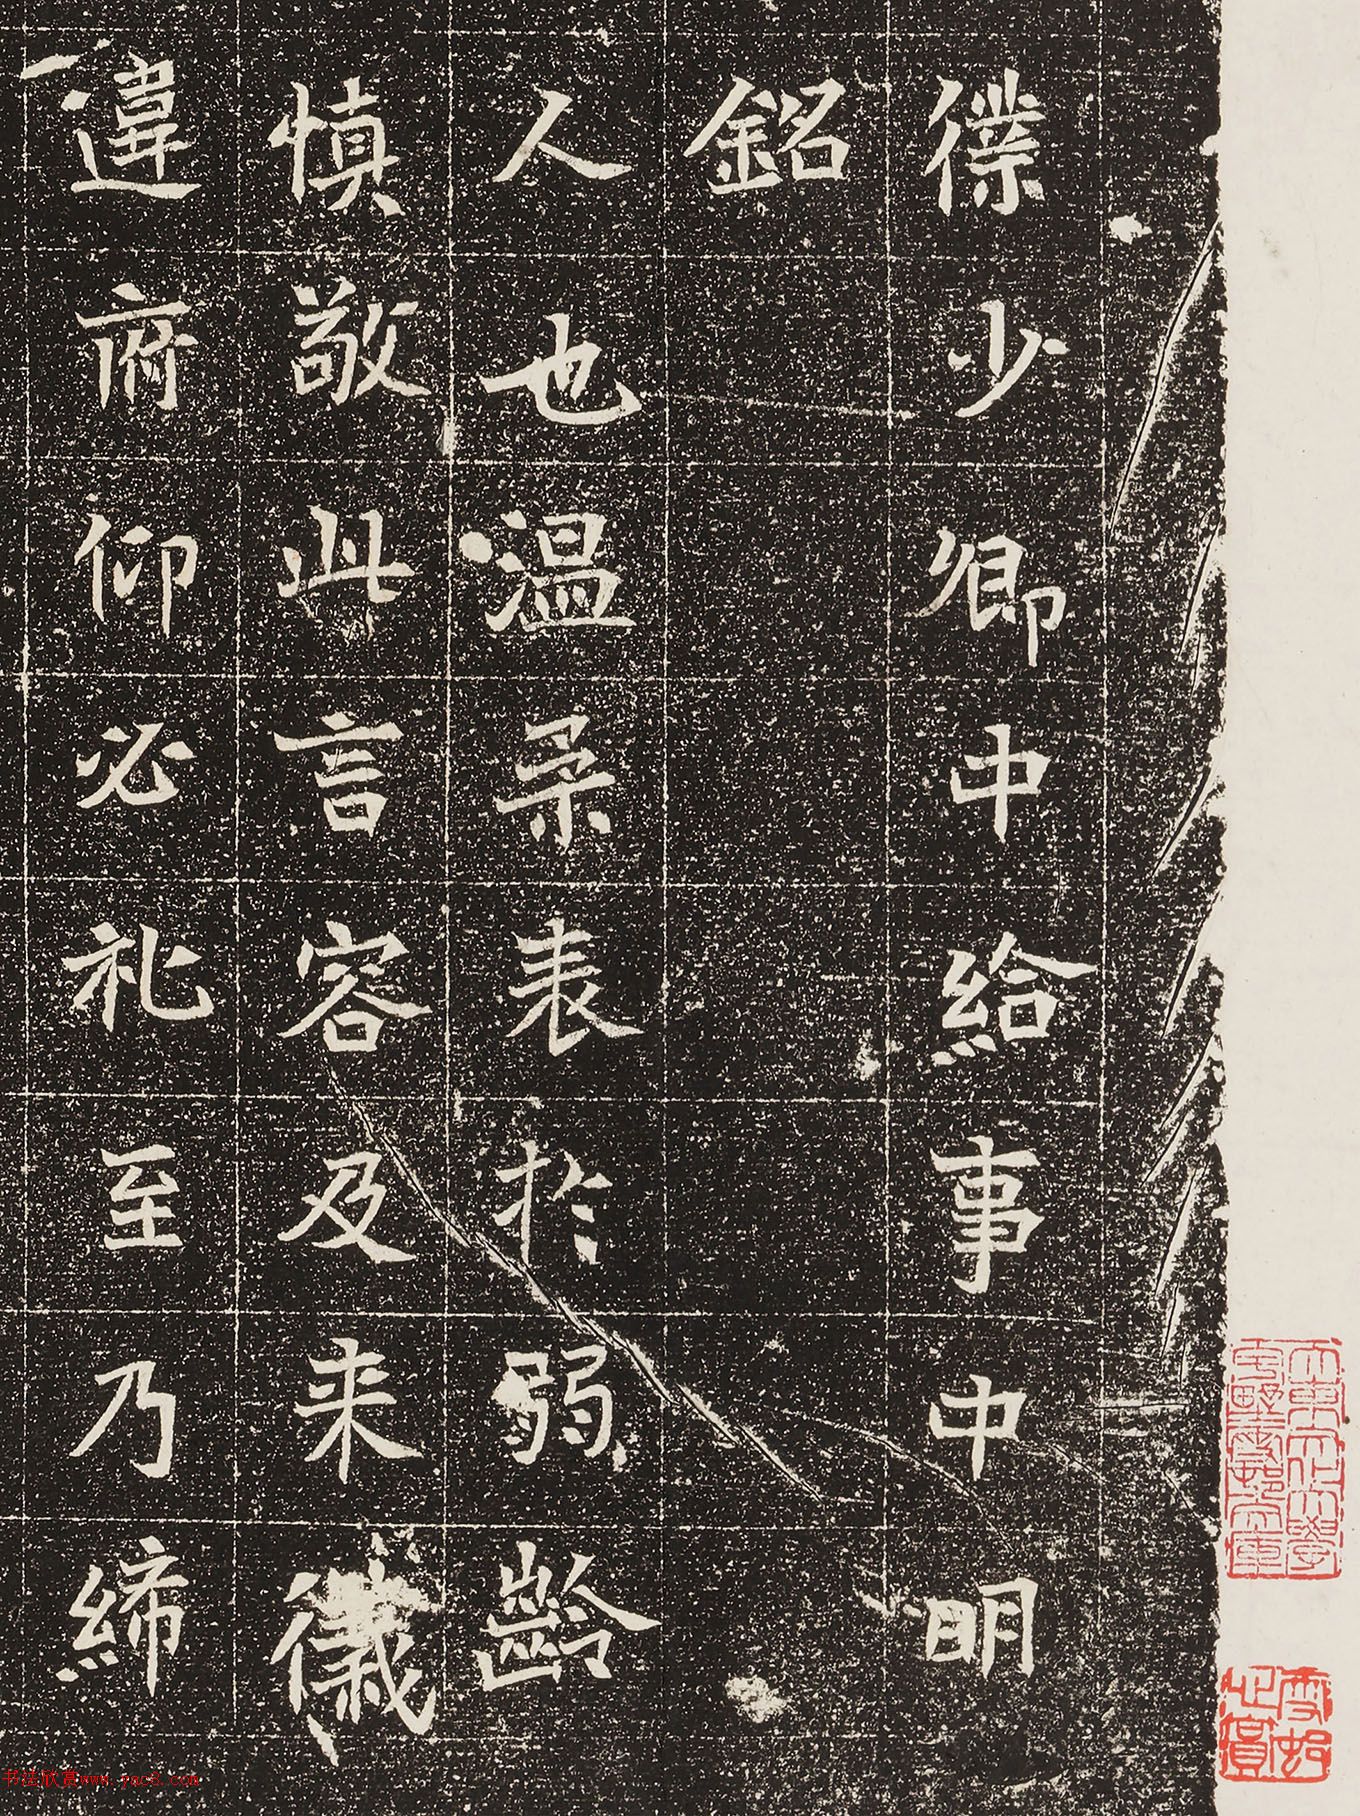 僕少卿中給事中明
銘
人也温柔表於弱齡
慎敬此言容及来儀
違府仰必礼至乃締
书法欣赏www.yac8.com